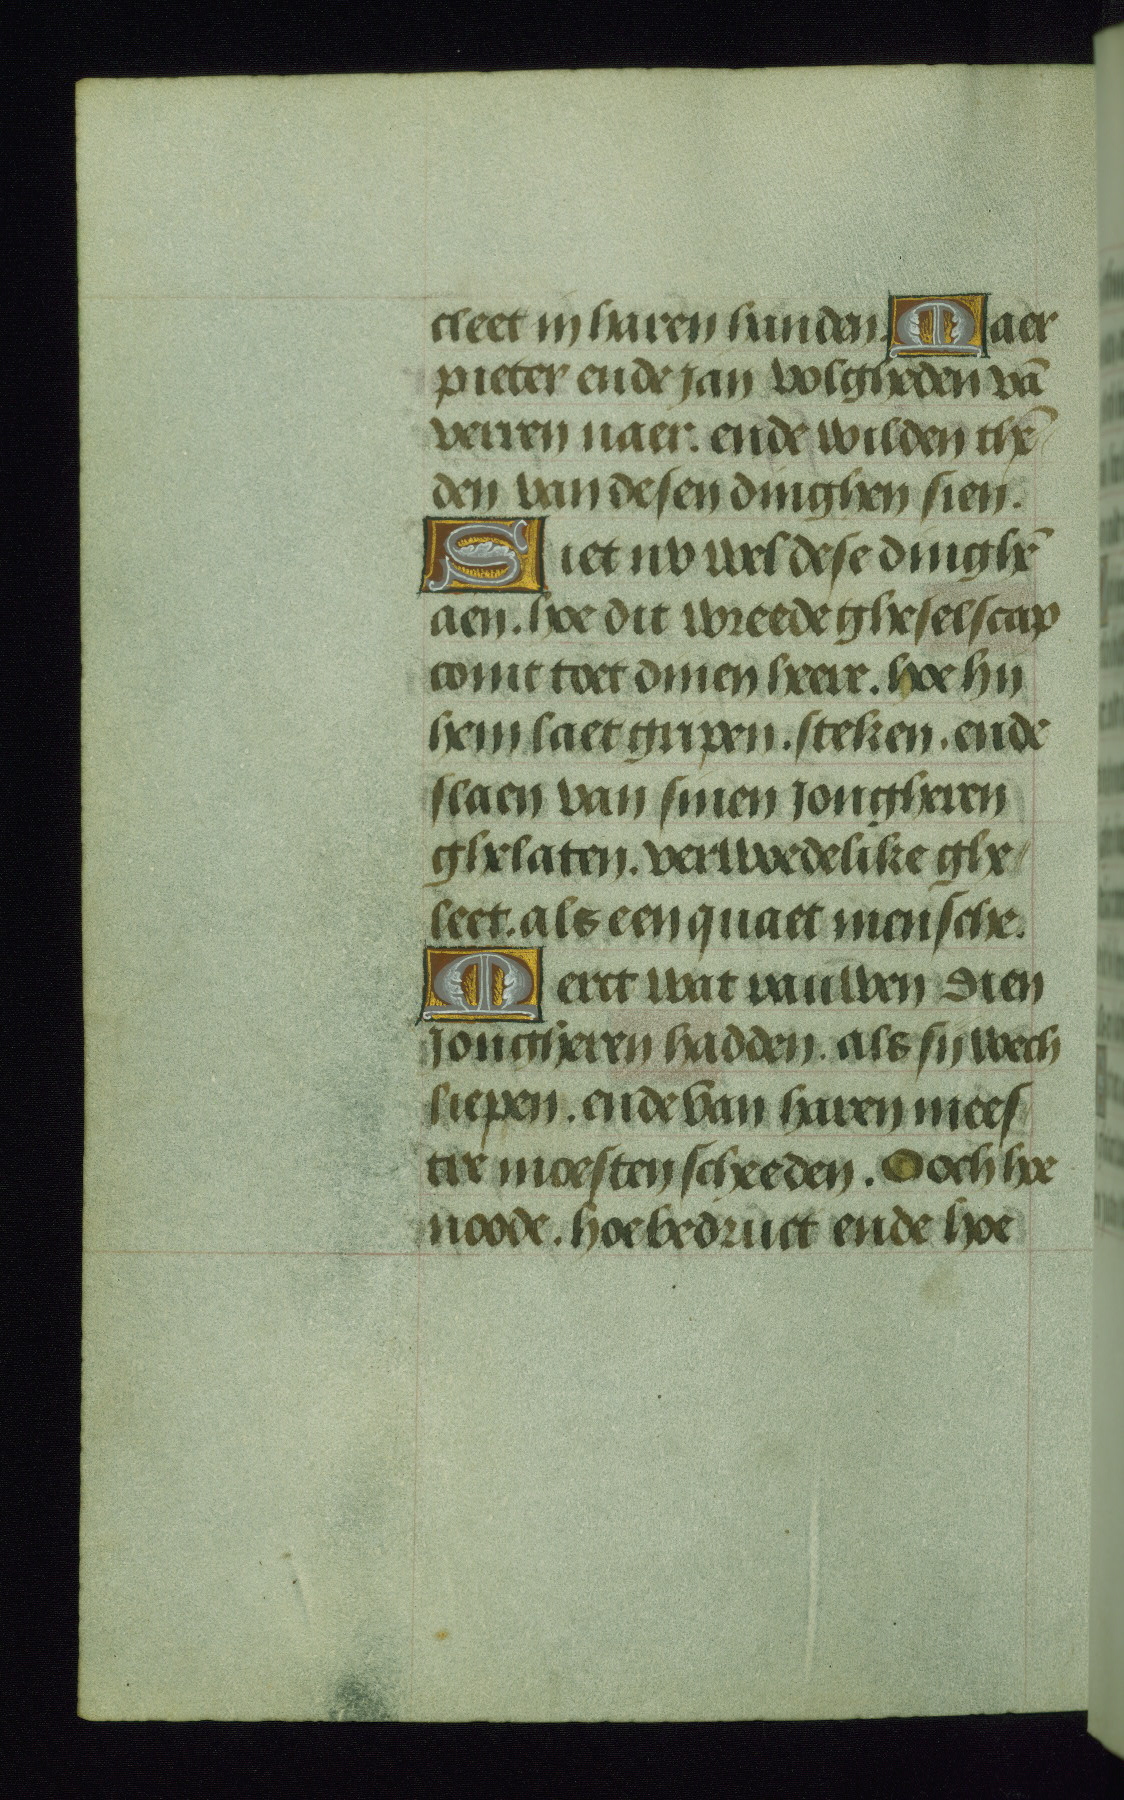 cleet in haren handen. Maer
pieter ende jan volgheden vā
verren naer. ende wilden thē
den van desen dinghen sien.
Siet nv wel dese dinghē
aen. hoe dit wreede gheselscap
comt toet dinen heere. hoe hij
hem laet gripen. steken. ende
slaen van sinen jongheren
ghelaten. verwoedelike ghe
leet. als een quaet mensche.
Merct wat rauwen dien
jongheren hadden. als sij wech
liepen. ende van haren mees
tre moesten scheeden. Ooch hoe
noode. hoe bedruct ende hoe